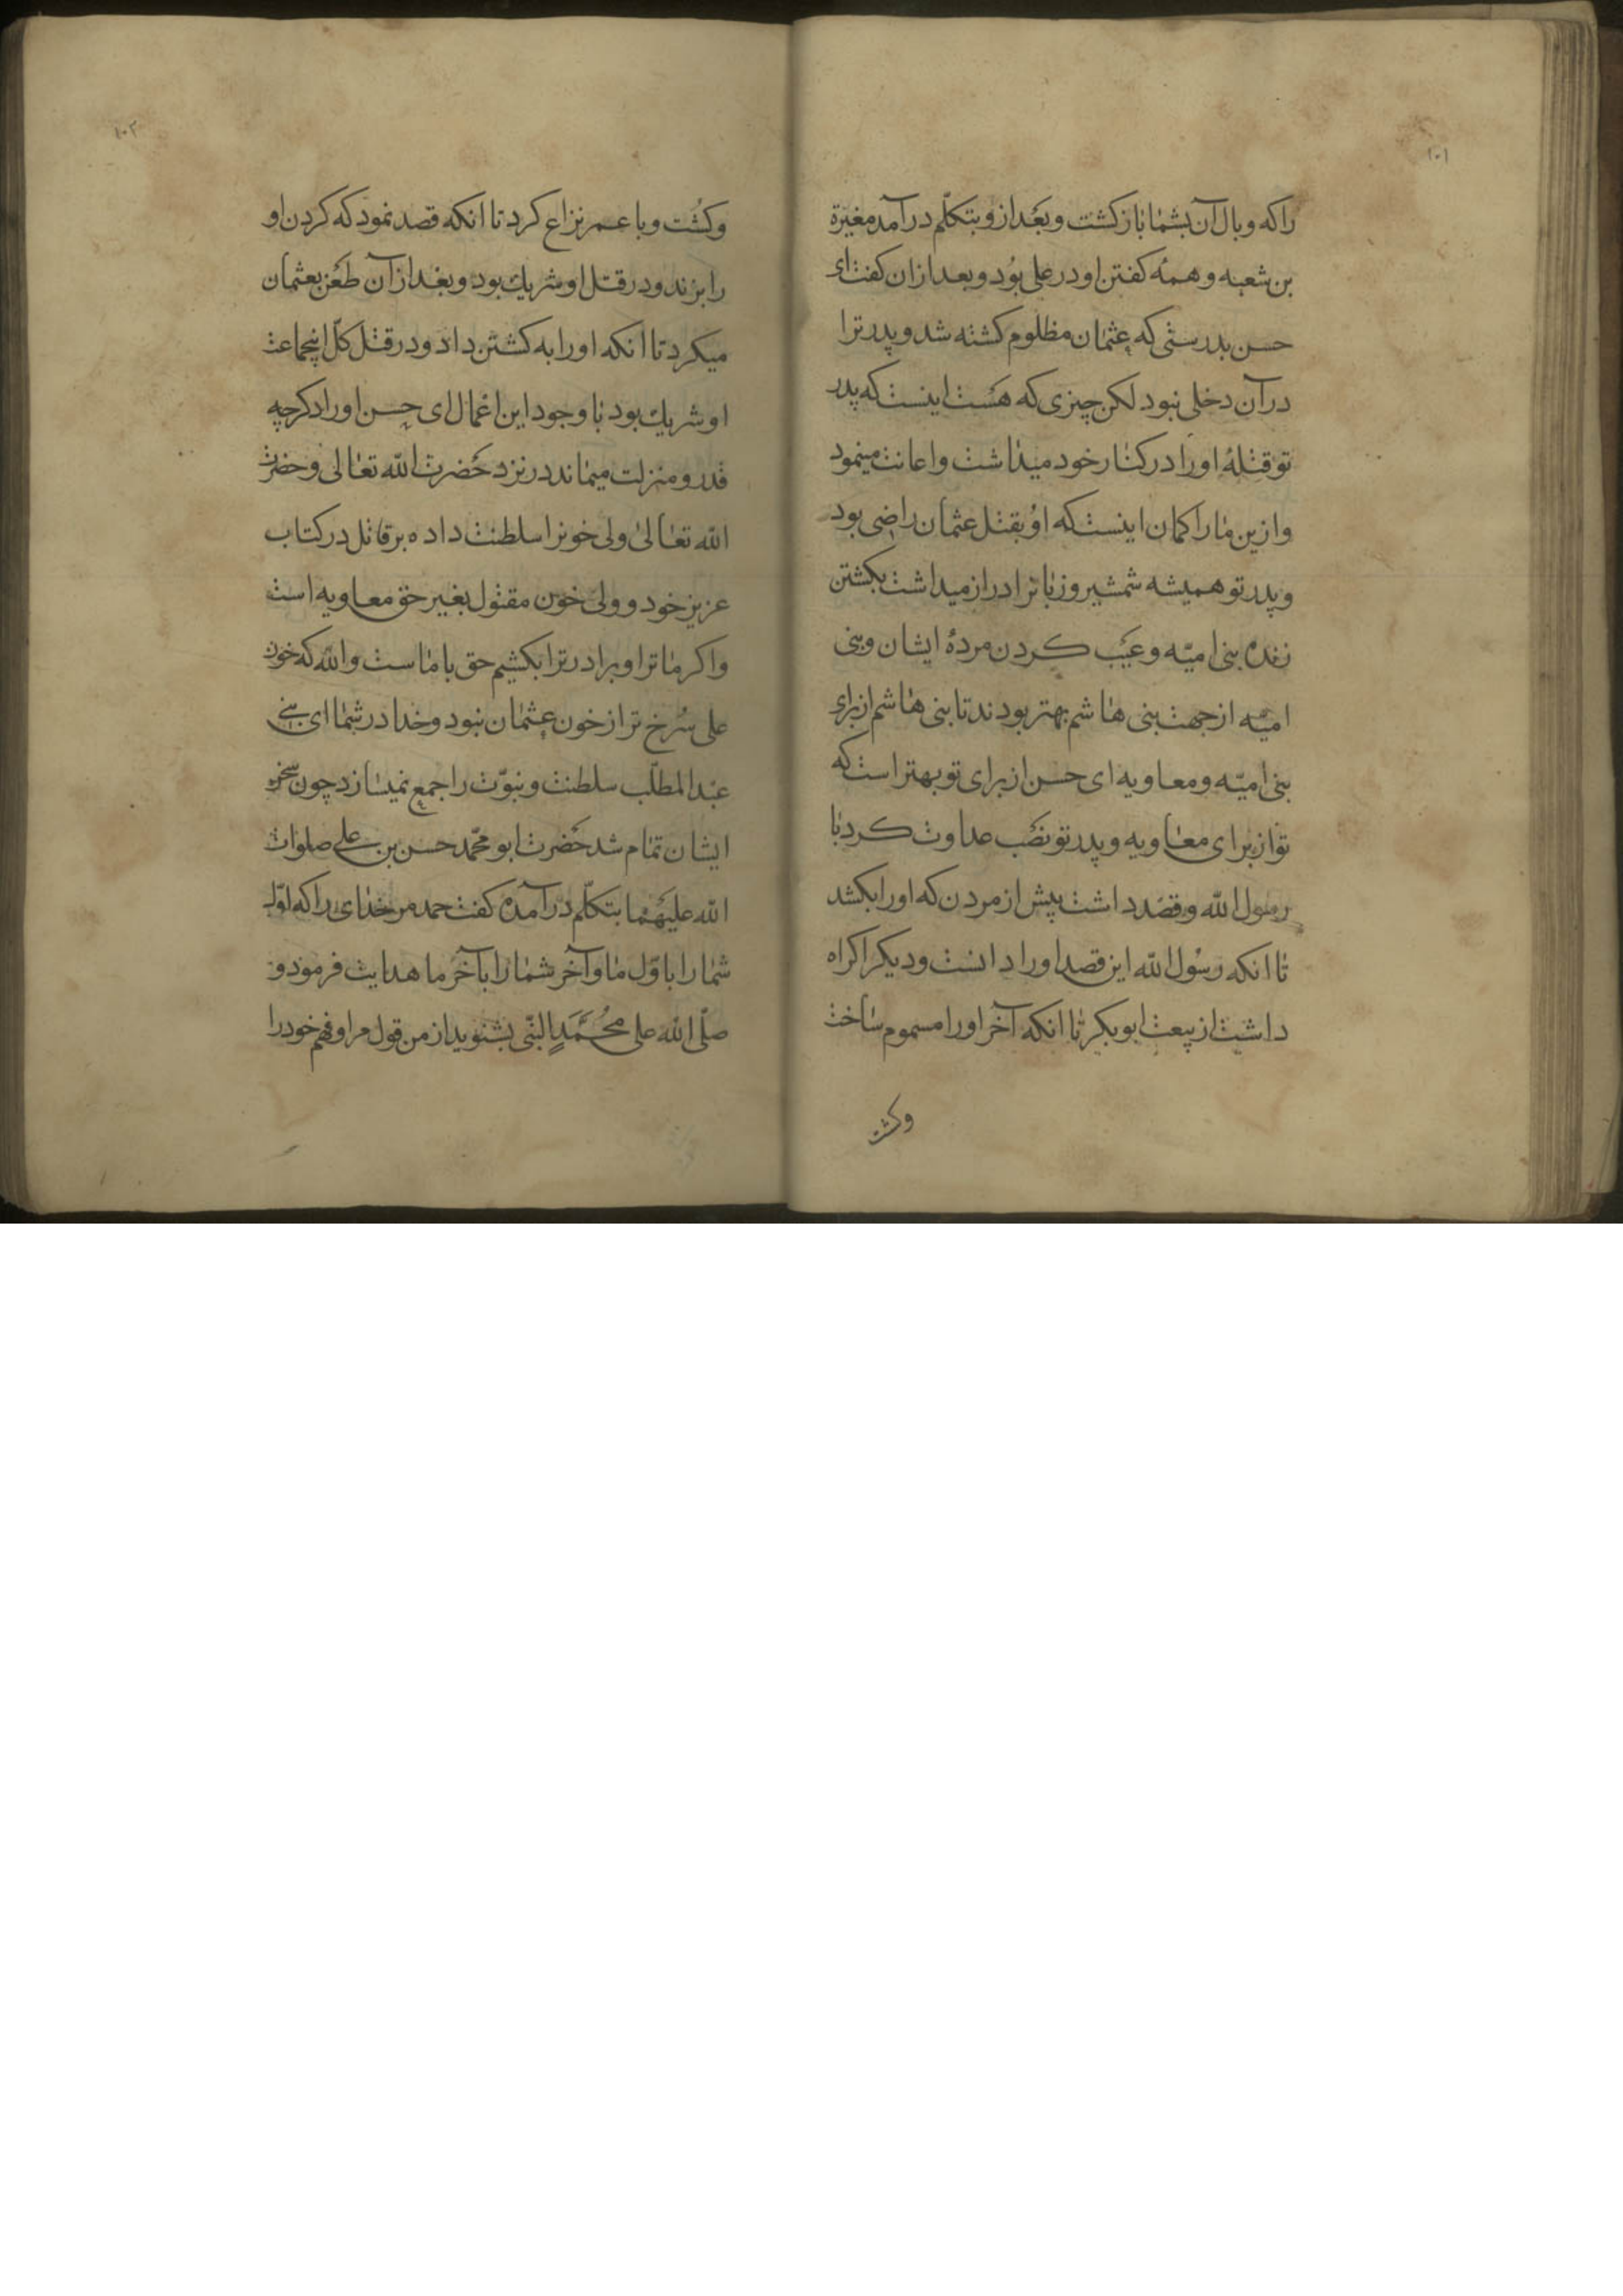 ۱۰۱
راکه وبال آن بشما بازکشت وبعد ازو بتکلّم درآمد مغیرة
بن شعبه وهمه کفتن او در علی بود وبعد ازان کفت ای
حسن بدرستی که عثمان مظلوم کشته شد وپدر ترا
درآن دخلی نبود لکن چیزی که هست اینست که پدر
تو قتلهٔ اورا درکنار خود میداشت واعانت مینمود
وازین مارا کمان اینست که او بقتل عثمان راضی بود
وپدر تو همیشه شمشیر وزبانرا دراز میداشت بکشتن
زنده بنی امیّه وعیب کردن مردهٔ ایشان وبنی
امیّه ازجهت بنی هاشم بهتر بودند تا بنی هاشم از برای
بنی امیّه ومعاویه ای حسن از برای تو بهتر است که
تو از برای معاویه وپدر تو نصب عداوت کرد با
رسول الله وقصد داشت پیش از مردن که اورا بکشد
تا انکه رسول الله این قصد اورا دانست ودیکر اکراه
داشت از بیعت ابوبکر تا انکه آخر اورا مسموم ساخت
وکشت
۱۰۲
وکشت وبا عمر نزاع کرد تا انکه قصد نمود که کردن او
را بزند ودر قتل او شریك بود وبعد ازآن طعن بعثمان
میکرد تا انکه اورا به کشتن داد ودر قتل کلّ اینجماعت
او شریك بود با وجود این اعمال ای حسن اورا دکر چه
قدر ومنزلت میماند در نزد حضرت الله تعالی وحضرت
الله تعالیٰ ولی خونرا سلطنت داده بر قاتل در کتاب
عزیز خود وولی خون مقتول بغیر حق معاویه است
واکر ما ترا وبرادر ترا بکشیم حق با ماست والله که خون
علی سُرخ تر از خون عثمان نبود وخدا در شما ای بنی
عبد المطلّب سلطنت ونبوّت را جمع نمیسازد چون سخن
ایشان تمام شد حضرت ابو محمّد حسن بن علی صلوات
الله علیهما بتکلّم درآمده کفت حمد مر خدای را که اوّل
شما را باوّل ما وآخر شما را بآخر ما هدایت فرمود و
صلّی الله علی محُمَّدٍ النّبی بشنوید از من قول مرا وفهم خود را